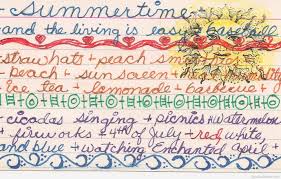 - summertime -
and the living is easy + baseball
+ straw hats + peach smoothies
+ peach + sunscreen +
ice tea + lemonade + barbecue +
+ cicadas singing + picnics + watermelon
+ fireworks + 4th of July + red, white,
and blue + watching Enchanted April +